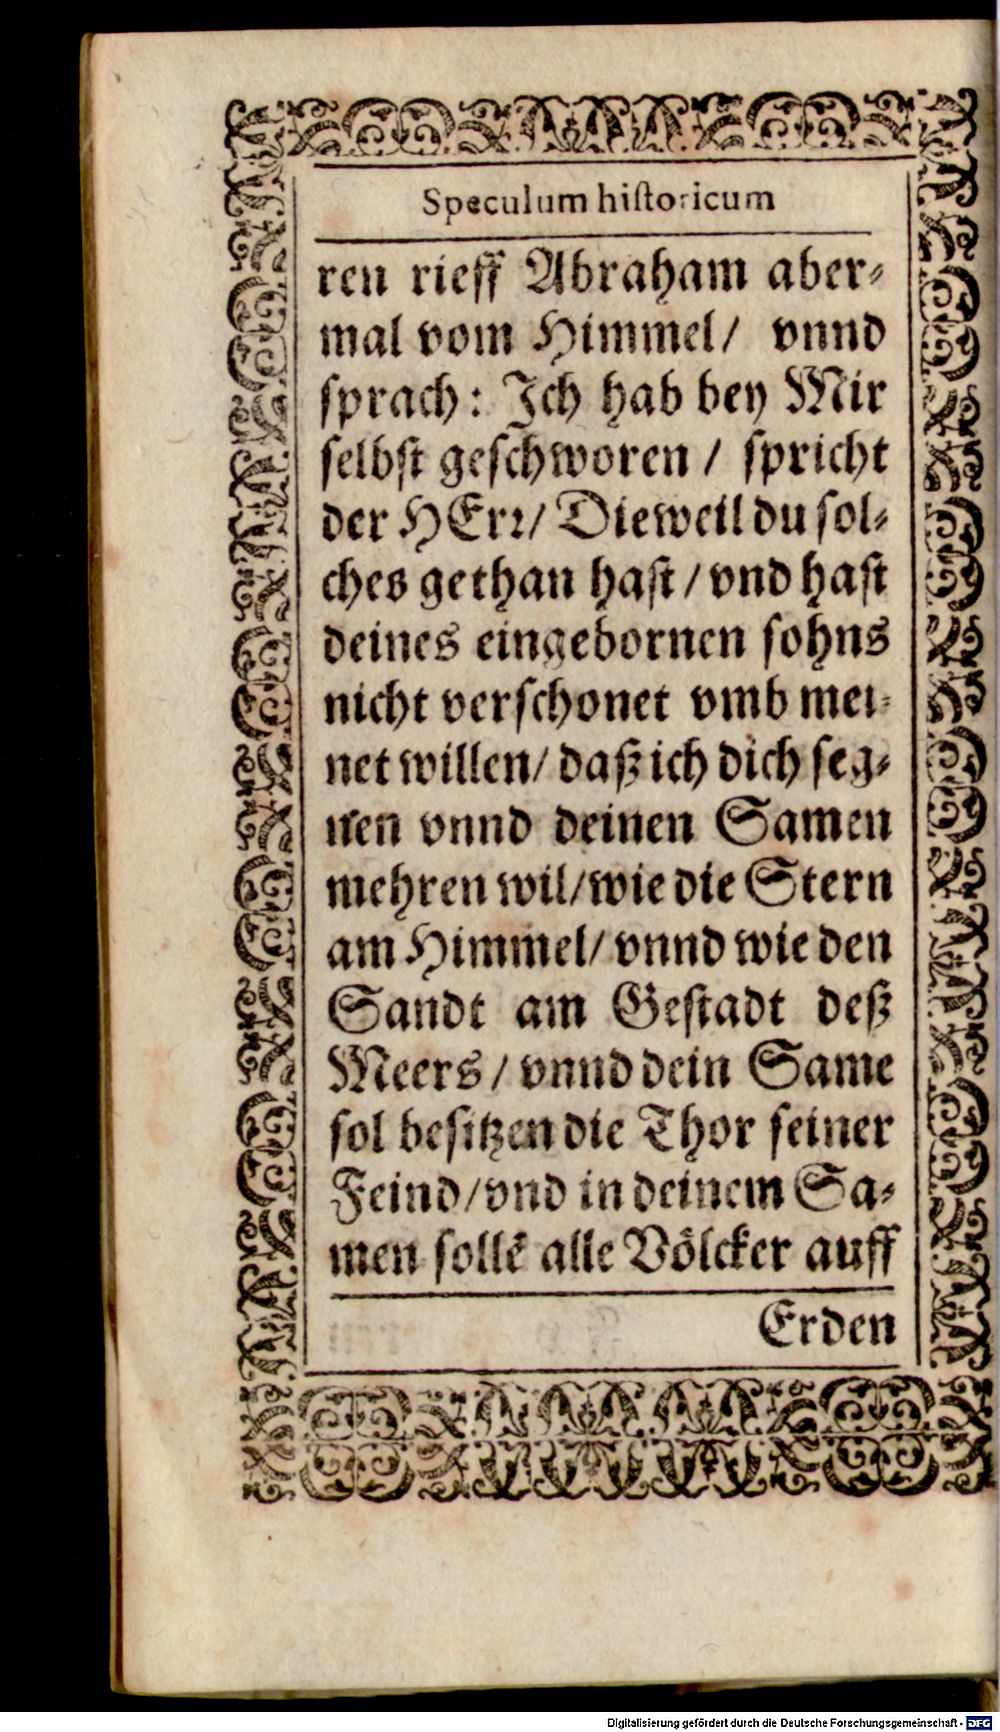 Speculum hiſtoricum
ren rieff Abraham aber⸗
mal vom Himmel/ vnnd
ſprach: Ich hab bey Mir
ſelbſt geſchworen / ſpricht
der HErꝛ/ Dieweil du ſol⸗
ches gethan haſt / vnd haſt
deines eingebornen ſohns
nicht verſchonet vmb mei⸗
net willen/ daß ich dich ſeg⸗
nen vnnd deinen Samen
mehren wil/ wie die Stern
am Himmel/ vnnd wie den
Sandt am Geſtadt deß
Meers / vnnd dein Same
ſol beſitzen die Thor ſeiner
Feind/ vnd in deinem Sa⸗
men ſollē alle Völcker auff
Erden
Digitalisierung gefördert durch die Deutsche Forschungsgemeinschaft - DFG